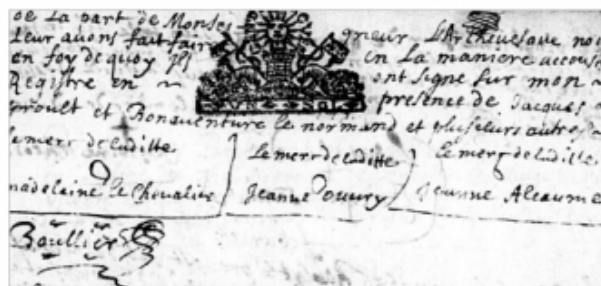 de La part de Monsei gneur L'Archevesque nou
Leur avons fait faire in La maniere accous
en foy de quoy ils ont signe sur mon
Registre en presence de Jacques
proult et Bonaventure le normand et plusieurs autres
le merc de laditte Le merc de laditte Le merc de laditte
madelaine le Chevalier Jeanne ouvry Jeanne Aleaume
Boullier